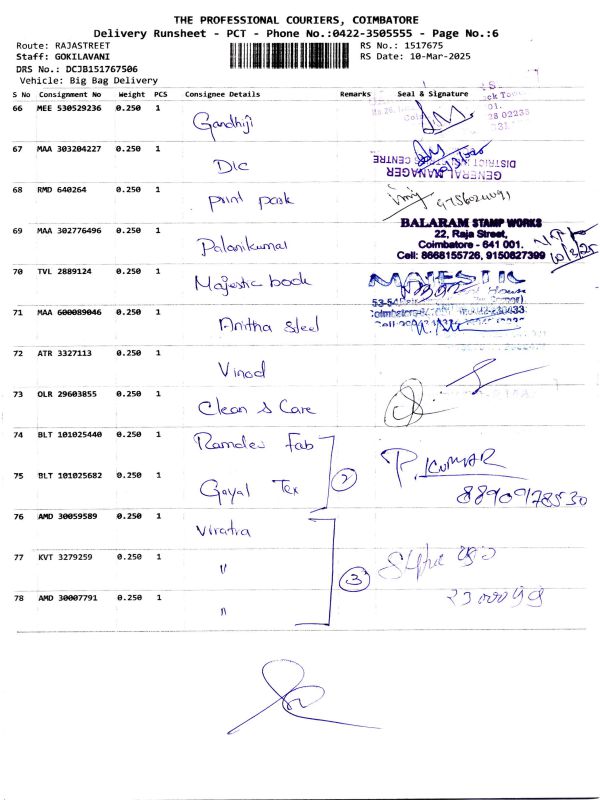 THE PROFESSIONAL COURIERS, COIMBATORE
Delivery Runsheet - PCT - Phone No.:0422-3505555 - Page No.:6
Route: RAJASTREET RS No.: 1517675
Staff: GOKILAVANI RS Date: 10-Mar-2025
DRS No.: DCJB151767506
Vehicle: Big Bag Delivery
S No Consignment No Weight PCS Consignee Details Remarks Seal & Signature
66 MEE 530529236 0.250 1 Gandhiji
67 MAA 303204227 0.250 1 DIC
GENERAL MANAGER
68 RMD 640264 0.250 1 print park
69 MAA 302776496 0.250 1 Palanikumar
BALARAM STAMP WORKS
22, Raja Street,
Coimbatore - 641 001.
Cell: 8668155726, 9150627399
10/3/25
70 TVL 2889124 0.250 1 Majestic book
MAJESTIC
71 MAA 600089046 0.250 1 Anitha steel
72 ATR 3327113 0.250 1 Vinod
73 OLR 29603855 0.250 1 Clean & Care
74 BLT 101025440 0.250 1 Ramdev Fab
75 BLT 101025682 0.250 1 Goyal Tex
2
P. KUMAR
8890978530
76 AMD 30059589 0.250 1 Viratra
77 KVT 3279259 0.250 1 "
3
78 AMD 30007791 0.250 1 "